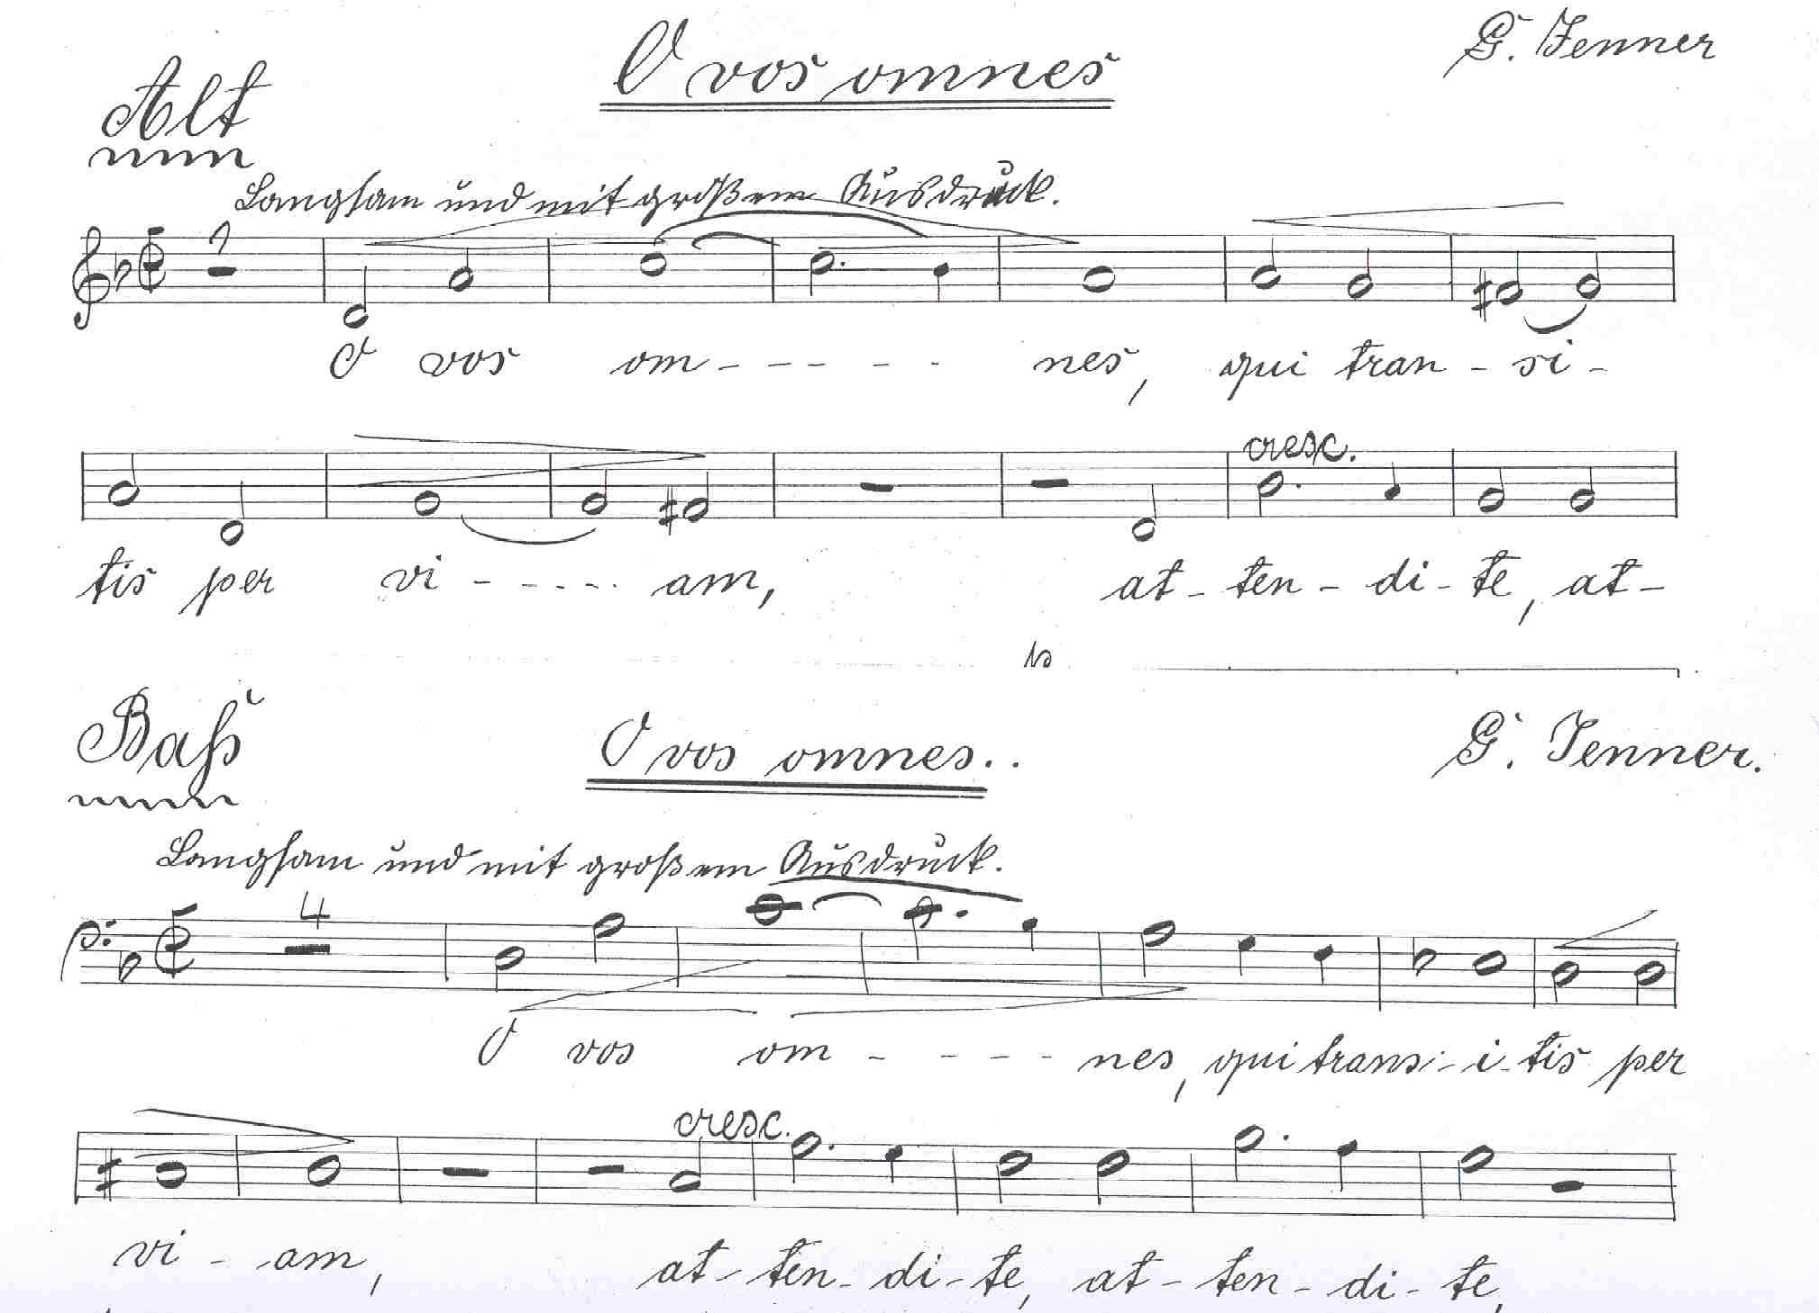 O vos omnes
G. Jenner
Alt
Langsam und mit großem Ausdruck.
O vos om - - - - - - nes, qui tran - si -
cresc.
tis per vi - - - - - am, at - ten - di - te, at -
Baß
O vos omnes..
G. Jenner.
Langsam und mit großem Ausdruck.
4
O vos om - - - - - nes, qui trans - i - tis per
cresc.
vi - - am, at - ten - di - te, at - ten - di - te,